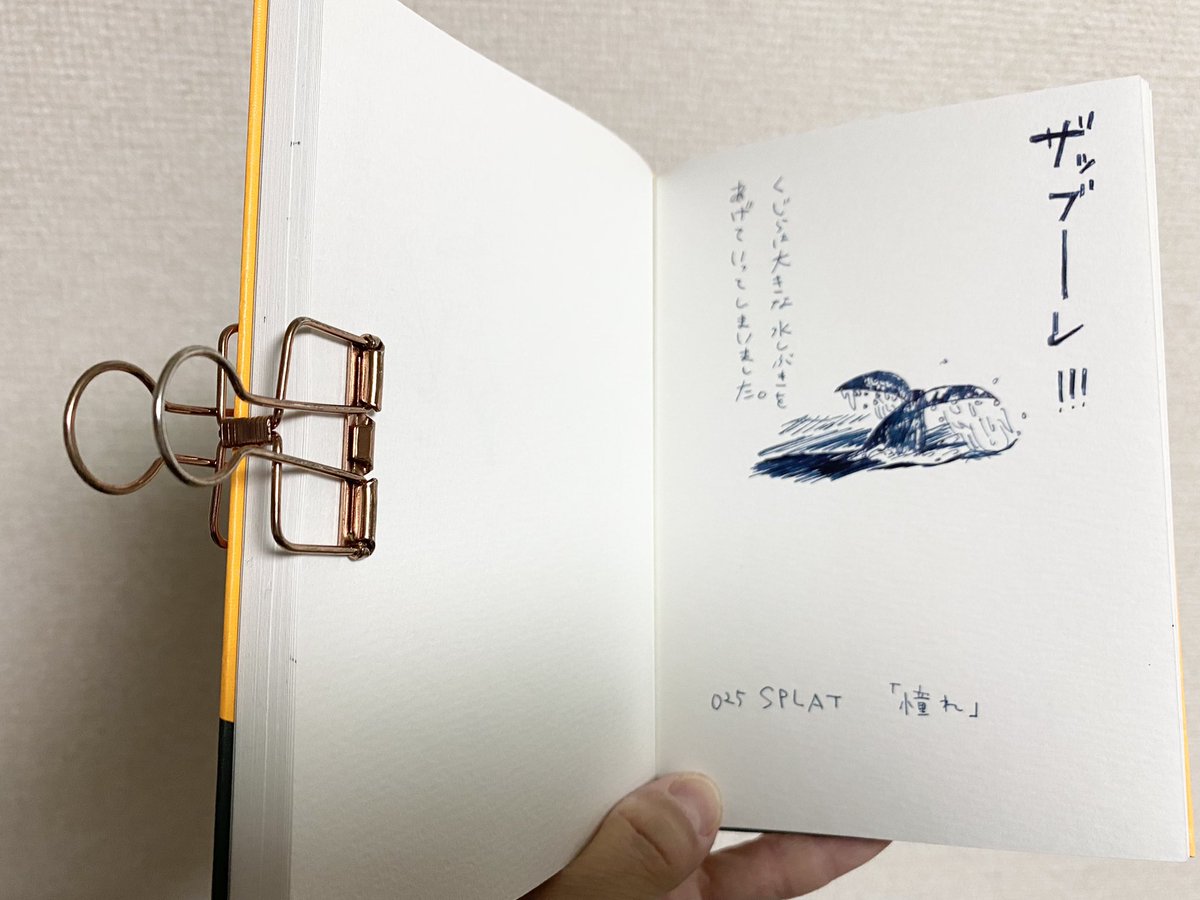 ザッブーーレ!!!
くじらは大きな水しぶきを
あげていってしまいました。
025 SPLAT 「憧れ」